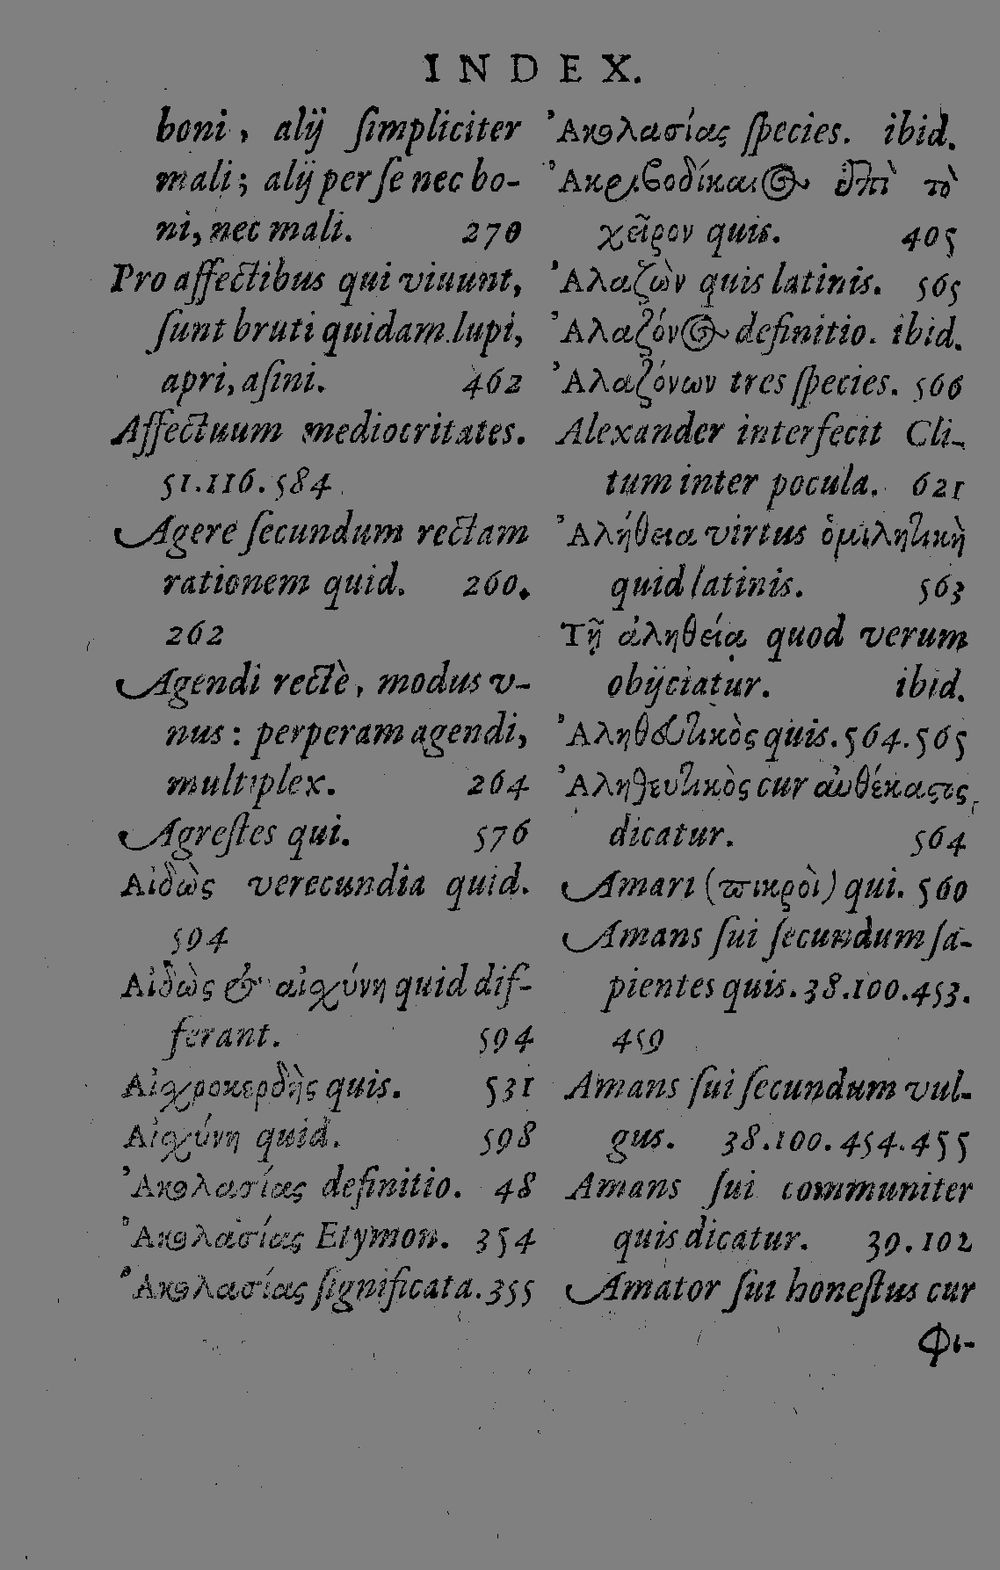 INDEX.
boni, alij ſimpliciter
mali; alij per ſe nec bo-
ni, nec mali. 270
Pro affectibus qui viuunt,
ſunt bruti quidam lupi,
apri, aſini. 462
Affectuum mediocritates.
51.116.584
Agere ſecundum rectam
rationem quid. 260.
262
Agendi rectè, modus v-
nus: perperam agendi,
multiplex. 264
Agreſtes qui. 576
Αἰδὼς verecundia quid.
594
Αἰδὼς & αἰσχύνη quid dif-
ferant. 594
Αἰσχροκερδὴς quis. 531
Αἰσχύνη quid. 598
Ἀκολασίας definitio. 48
Ἀκολασίας Etymon. 354
Ἀκολασίας ſignificata. 355
Ἀκολασίας ſpecies. ibid.
Ἀκριβοδίκαιος ἐπὶ τὸ
χεῖρον quis. 405
Ἀλαζὼν quis latinis. 565
Ἀλαζόνος definitio. ibid.
Ἀλαζόνων tres ſpecies. 566
Alexander interfecit Cli-
tum inter pocula. 621
Ἀλήθεια virtus ὁμιλητικὴ
quid latinis. 563
Τῇ ἀληθείᾳ quod verum
obijciatur. ibid.
Ἀληθευτικὸς quis. 564.565
Ἀληθευτικὸς cur αὐθέκαστος
dicatur. 564
Amari (πικροὶ) qui. 560
Amans ſui ſecundum ſa-
pientes quis. 38.100.453.
459
Amans ſui ſecundum vul-
gus. 38.100.454.455
Amans ſui communiter
quis dicatur. 39.102
Amator ſui honeſtus cur
Φι-